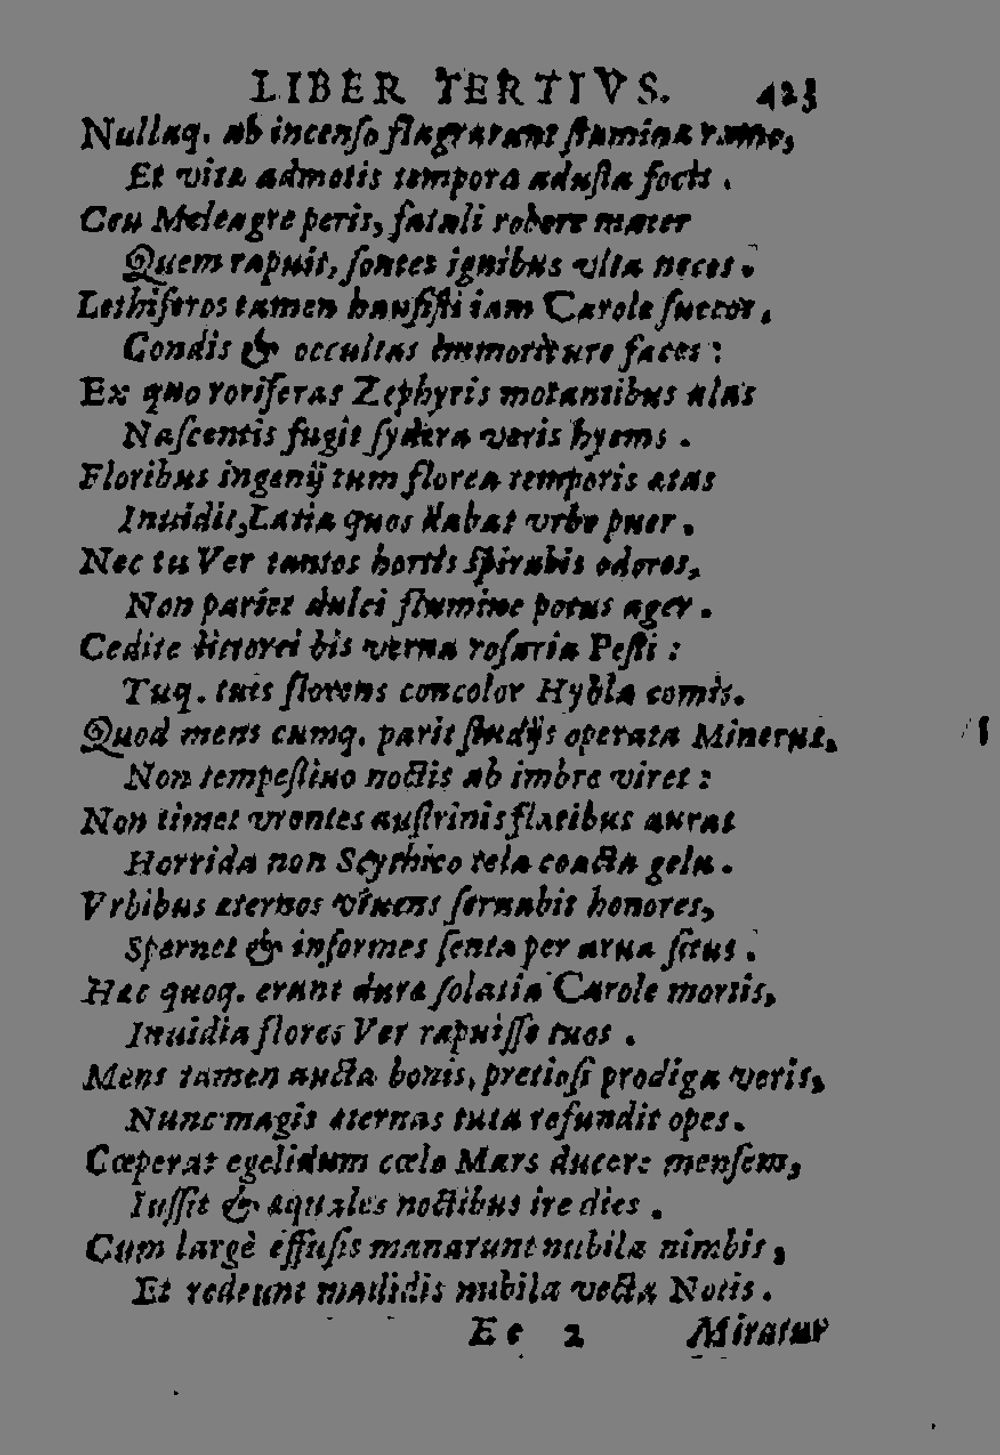 LIBER TERTIVS. 423
Nullaq. ab incenso flagrarant stamina ramo,
Et vitæ admotis tempora adusta focis.
Ceu Meleagre peris, fatali robore mater
Quem rapuit, sontes ignibus vlta neces.
Lethiferos tamen hausisti iam Carole succos,
Condis & occultas immoriture faces:
Ex quo roriferas Zephyris motantibus alas
Nascentis fugit sydera veris hyems.
Floribus ingenij tum florea temporis ætas
Inuidit, Latia quos dabat vrbe puer.
Nec tu Ver tantos hortis spirabis odores,
Non pariet dulci flumine potus ager.
Cedite bis verna rosaria Pesti:
Tuq. tuis florens concolor Hybla comis.
Quod mens cumq. parit studijs operata Mineruæ,
Non tempestiuo noctis ab imbre viret:
Non timet vrentes austrinis flatibus auras
Horrida non Scythico tela coacta gelu.
Vrbibus æternos viuens seruabit honores,
Spernet & informes senta per arua situs.
Hæc quoq. erunt duræ solatia Carole mortis,
Inuidia flores Ver rapuisse tuos.
Mens tamen aucta bonis, pretiosi prodiga veris,
Nunc magis æternas tuta refundit opes.
Cœperat egelidum cœlo Mars ducere mensem,
Iussit & æquales noctibus ire dies.
Cum largè effusis manarunt nubila nimbis,
Et redeunt madidis nubila vecta Notis.
Ee 2 Miratur